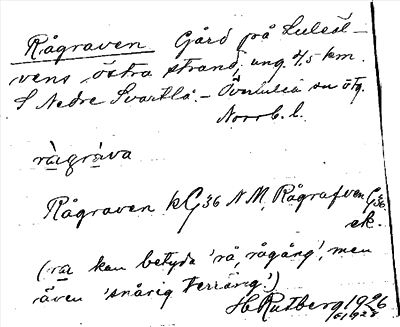 Rågraven Gård på Luleäl-
vens östra strand, ung. 4,5 km.
S Nedre Svartlå. - Överluleå sn
Norrb. l.
ràgráva
Rågraven kG36 NM, Rågrafven G36
ek.
(rå kan betyda 'rå, rågång', men
även 'snårig terräng'.)
H Rutberg 1926